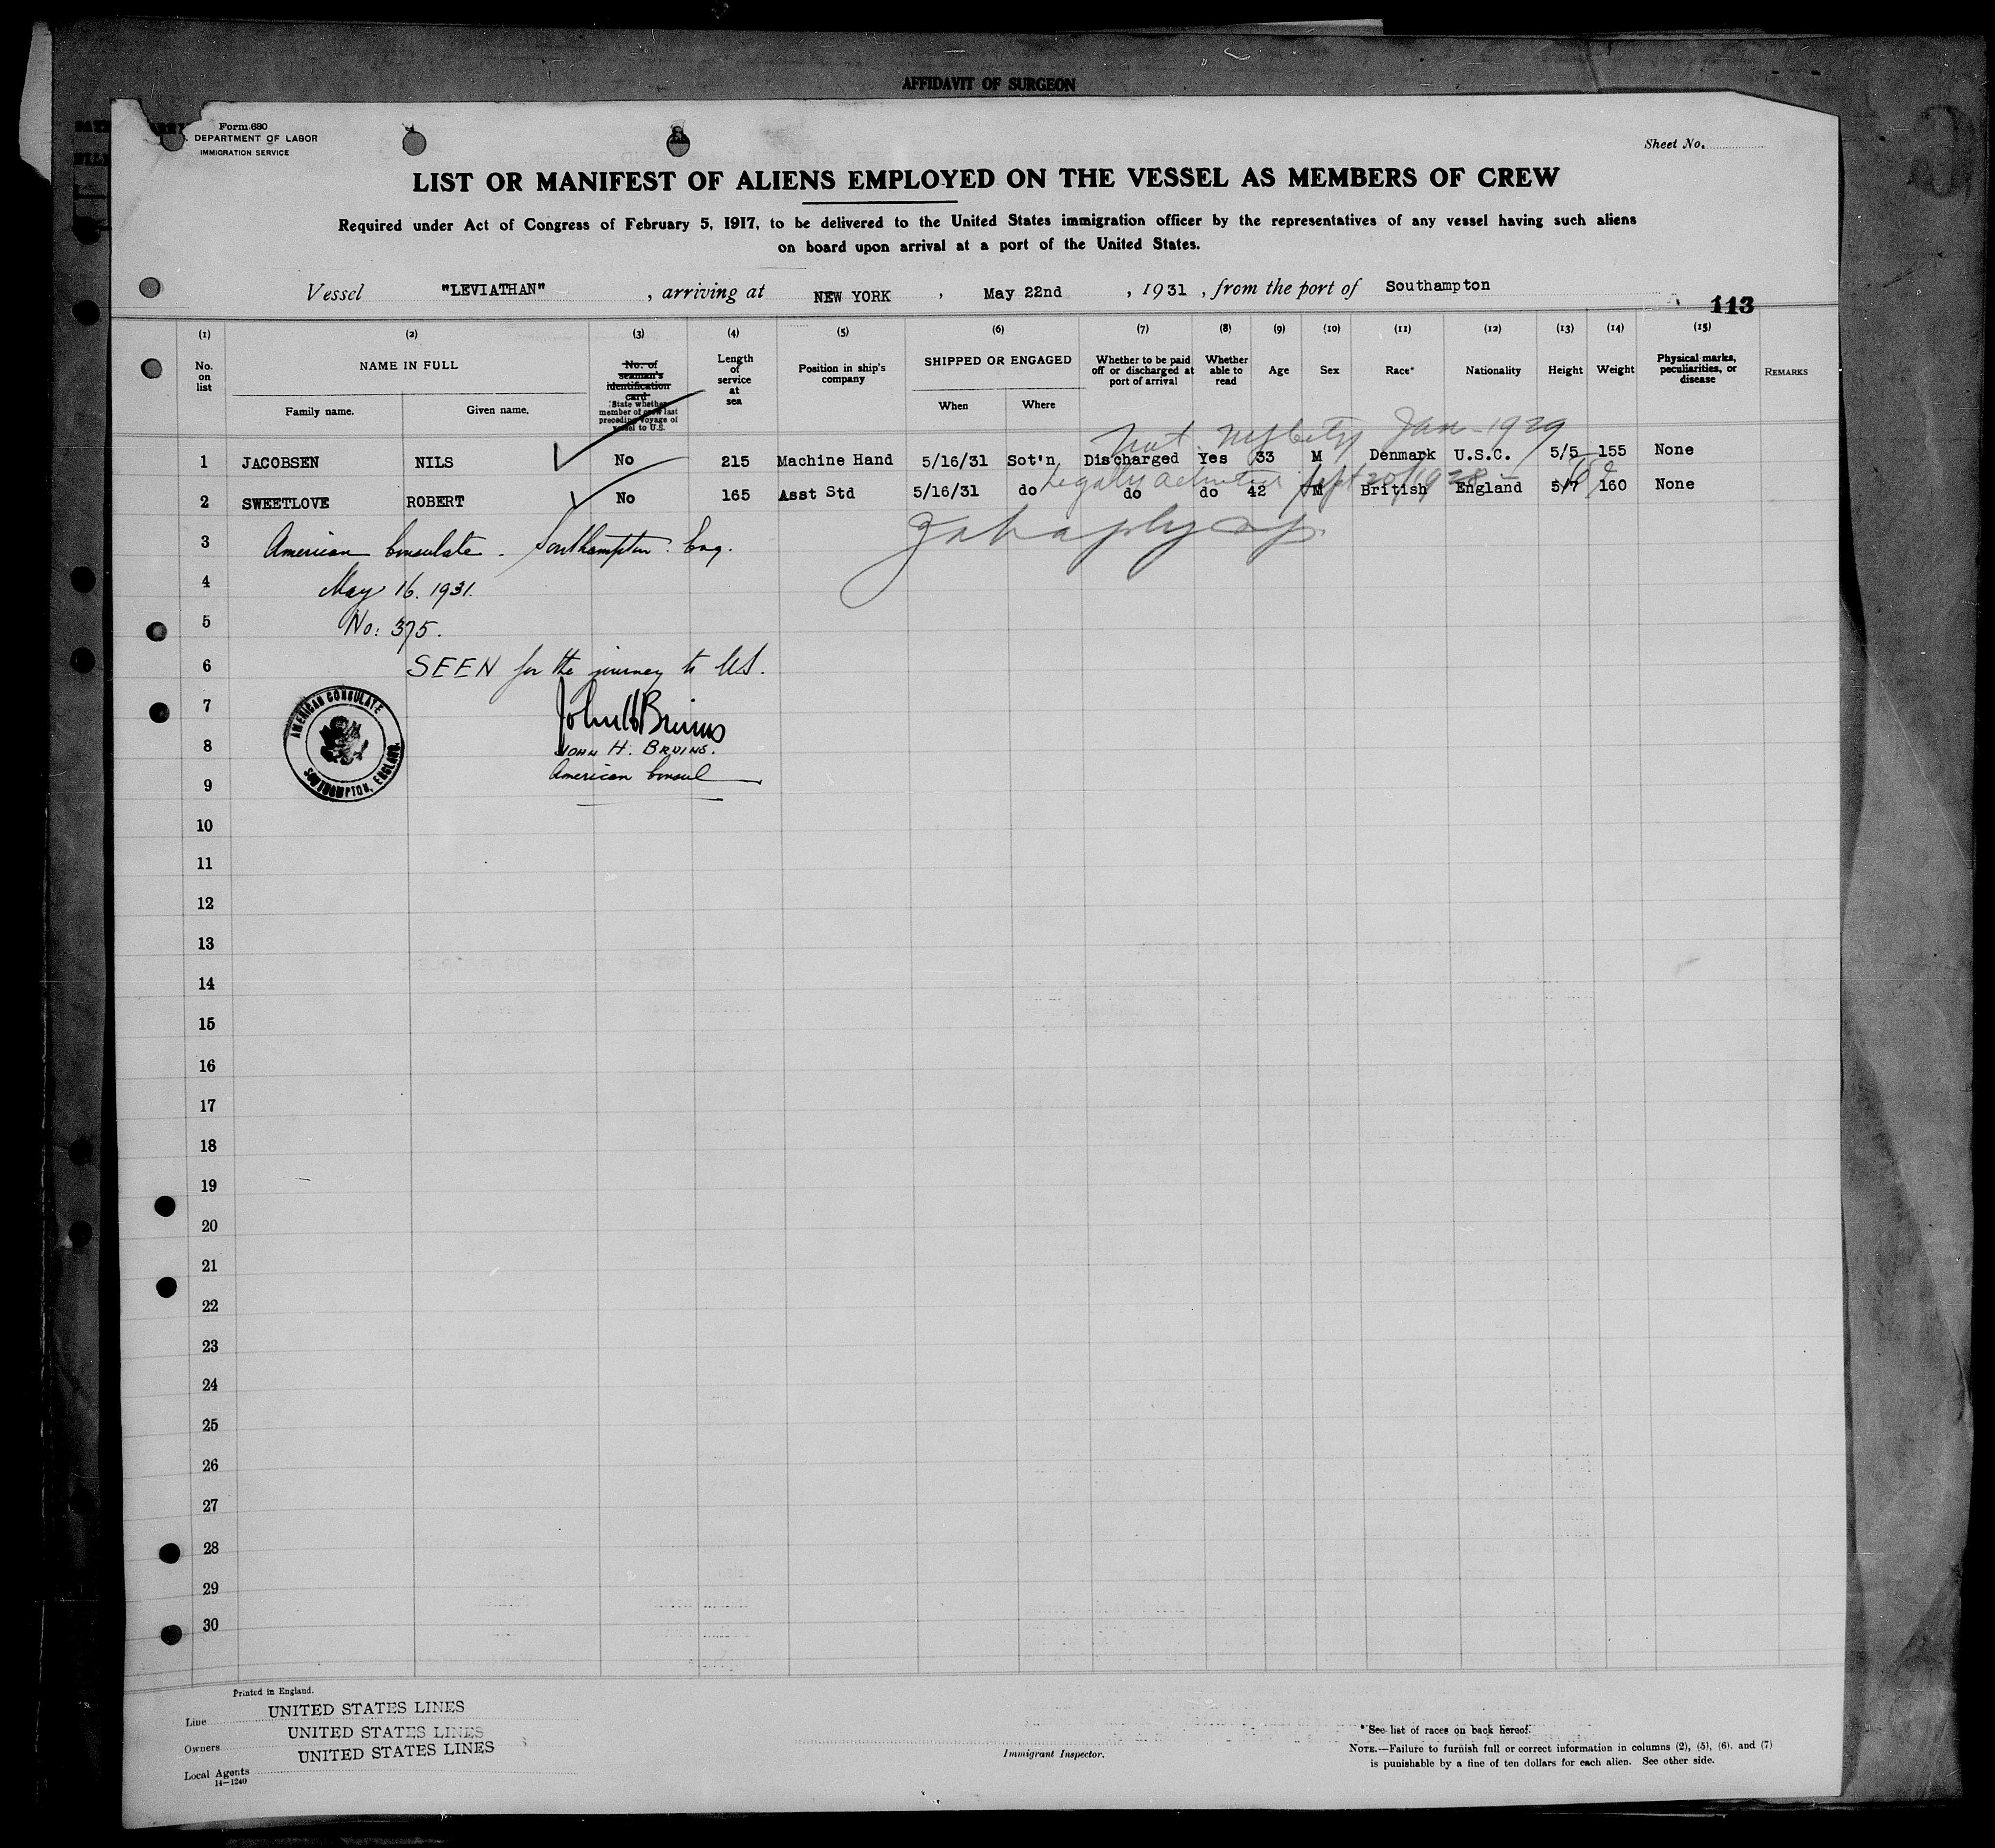 AFFIDAVIT OF SURGEON
Form 680
DEPARTMENT OF LABOR
IMMIGRATION SERVICE
Sheet No.
LIST OR MANIFEST OF ALIENS EMPLOYED ON THE VESSEL AS MEMBERS OF CREW
Required under Act of Congress of February 5, 1917, to be delivered to the United States immigration officer by the representatives of any vessel having such aliens
on board upon arrival at a port of the United States.
Vessel "LEVIATHAN", arriving at NEW YORK, May 22nd, 1931, from the port of Southampton
113
(1) (2) (3) (4) (5) (6) (7) (8) (9) (10) (11) (12) (13) (14) (15)
No. on list NAME IN FULL Family name. Given name. No. of seaman's identification card State whether member of crew last preceding voyage of vessel to U.S. Length of service at sea Position in ship's company SHIPPED OR ENGAGED When Where Whether to be paid off or discharged at port of arrival Whether able to read Age Sex Race* Nationality Height Weight Physical marks, peculiarities, or disease REMARKS
Nat. Jan - 1929
1 JACOBSEN NILS No 215 Machine Hand 5/16/31 Sot'n Discharged Yes 33 M Denmark U.S.C. 5/5 155 None
Legally admitted Sept 20/1928
2 SWEETLOVE ROBERT No 165 Asst Std 5/16/31 do do do 42 M British England 5/7 160 None
3 American Consulate. Southampton. Eng.
4 May 16. 1931.
5 No: 375.
6 SEEN for the journey to U.S.
7 John H Bruins
8 JOHN H. BRUINS.
9 American Consul
AMERICAN CONSULATE
SOUTHAMPTON, ENGLAND.
10
11
12
13
14
15
16
17
18
19
20
21
22
23
24
25
26
27
28
29
30
Printed in England.
Line UNITED STATES LINES
Owners UNITED STATES LINES
Local Agents UNITED STATES LINES
14—1240
Immigrant Inspector.
* See list of races on back hereof.
NOTE.—Failure to furnish full or correct information in columns (2), (5), (6), and (7)
is punishable by a fine of ten dollars for each alien. See other side.